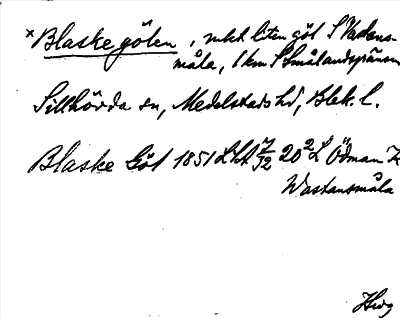 × Blaske gölen, mkt liten göl S Vadans-
måla, 1 km S Smålandsgränsen
Sillhövda sn, Medelstads hd, Blek. l.
Blaske Göl 1851 LSA 20² Ödman
Wastansmåla